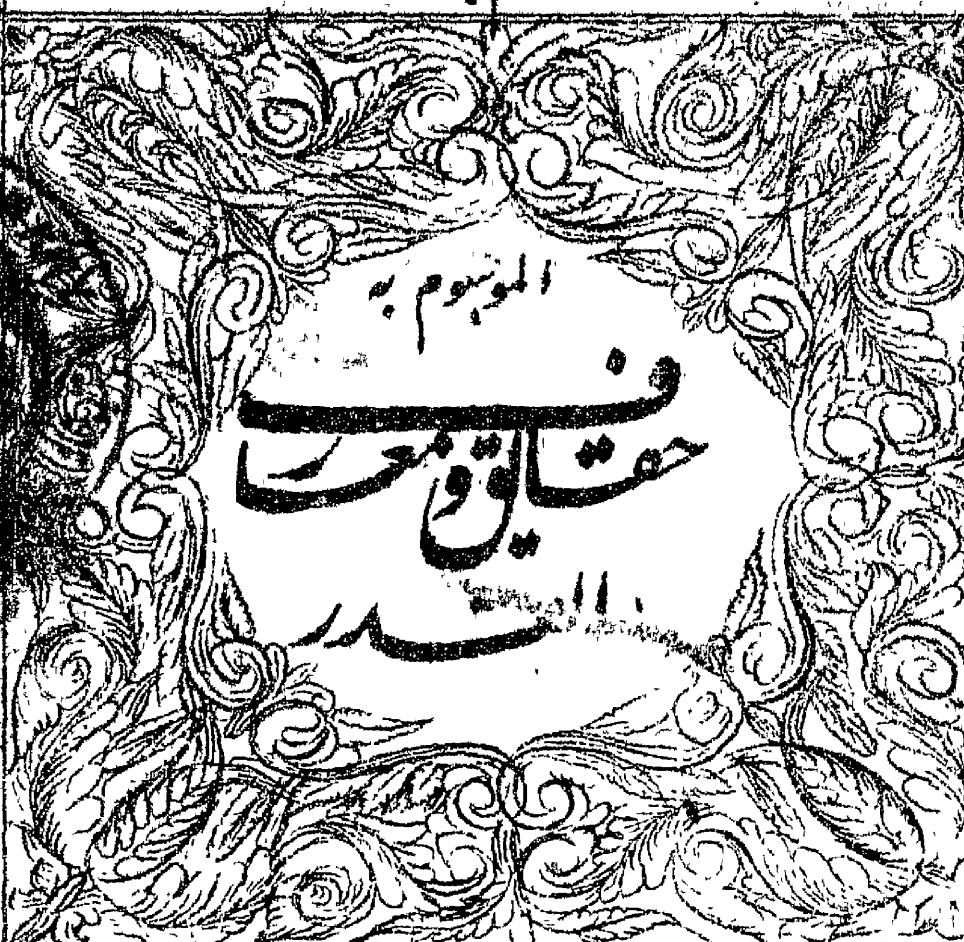 الموسوم به
حقایق و معارف
القدر